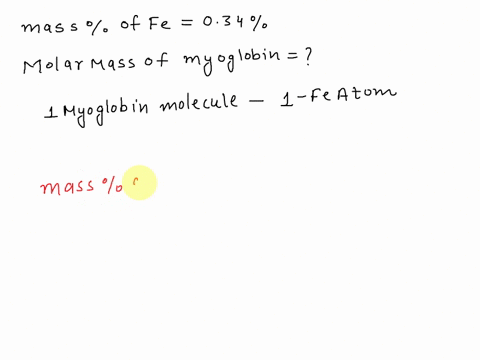 mass % of Fe = 0.34%
Molar Mass of myoglobin = ?
1 Myoglobin molecule - 1-Fe Atom
mass %